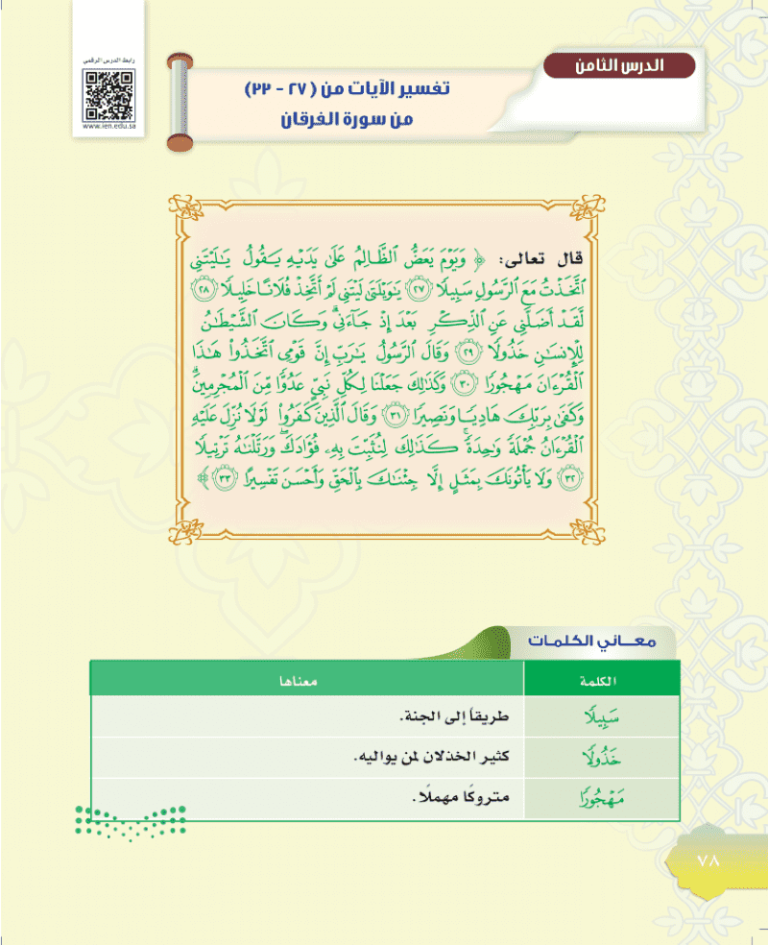 رابط الدرس الرقمي
www.ien.edu.sa
الدرس الثامن
تفسير الآيات من ( ٢٧ - ٣٣)
من سورة الفرقان
قال تعالى: ﴿ وَيَوْمَ يَعَضُّ ٱلظَّالِمُ عَلَىٰ يَدَيْهِ يَقُولُ يَٰلَيْتَنِى
ٱتَّخَذْتُ مَعَ ٱلرَّسُولِ سَبِيلًا ٢٧ يَٰوَيْلَتَىٰ لَيْتَنِى لَمْ أَتَّخِذْ فُلَانًا خَلِيلًا ٢٨
لَّقَدْ أَضَلَّنِى عَنِ ٱلذِّكْرِ بَعْدَ إِذْ جَآءَنِى ۗ وَكَانَ ٱلشَّيْطَٰنُ
لِلْإِنسَٰنِ خَذُولًا ٢٩ وَقَالَ ٱلرَّسُولُ يَٰرَبِّ إِنَّ قَوْمِى ٱتَّخَذُوا۟ هَٰذَا
ٱلْقُرْءَانَ مَهْجُورًا ٣٠ وَكَذَٰلِكَ جَعَلْنَا لِكُلِّ نَبِىٍّ عَدُوًّا مِّنَ ٱلْمُجْرِمِينَ ۗ
وَكَفَىٰ بِرَبِّكَ هَادِيًا وَنَصِيرًا ٣١ وَقَالَ ٱلَّذِينَ كَفَرُوا۟ لَوْلَا نُزِّلَ عَلَيْهِ
ٱلْقُرْءَانُ جُمْلَةً وَٰحِدَةً ۚ كَذَٰلِكَ لِنُثَبِّتَ بِهِۦ فُؤَادَكَ ۖ وَرَتَّلْنَٰهُ تَرْتِيلًا
٣٢ وَلَا يَأْتُونَكَ بِمَثَلٍ إِلَّا جِئْنَٰكَ بِٱلْحَقِّ وَأَحْسَنَ تَفْسِيرًا ٣٣ ﴾
معـــاني الكلمـات
الكلمة معناها
سَبِيلًا طريقاً إلى الجنة.
خَذُولًا كثير الخذلان لمن يواليه.
مَهْجُورًا متروكًا مهملًا.
٧٨